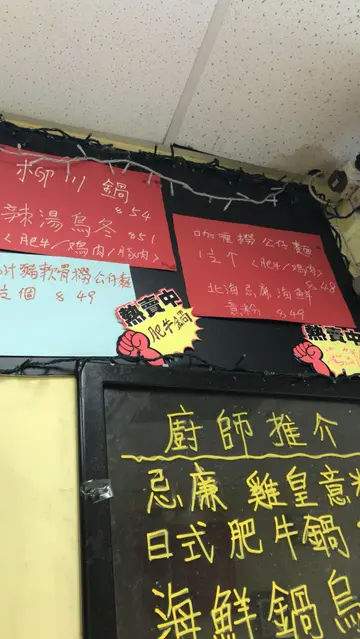 柳川鍋 $54
辣湯烏冬 $51
(肥牛/鷄肉/豚肉)
汁豬軟骨撈公仔麵
這個 $49
咖喱撈公仔麵
這个 (肥牛/鷄肉)
$48
北海忌廉海鮮
意粉 $49
熱賣中
肥牛鍋
熱賣中
廚師推介
忌廉雞皇意
日式肥牛鍋
海鮮鍋烏